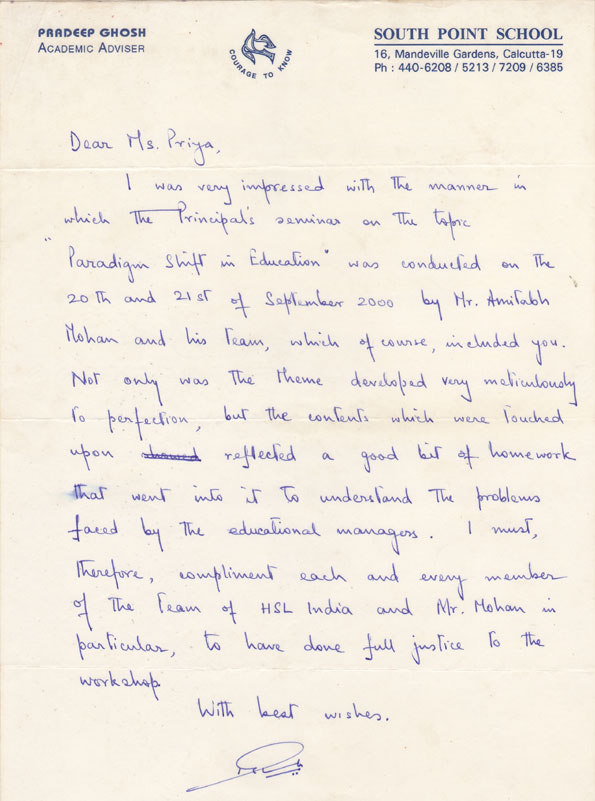 PRADEEP GHOSH
ACADEMIC ADVISER
COURAGE TO KNOW
SOUTH POINT SCHOOL
16, Mandeville Gardens, Calcutta-19
Ph : 440-6208 / 5213 / 7209 / 6385
Dear Ms. Priya,
I was very impressed with the manner in
which the Principal's seminar on the topic
"Paradigm Shift in Education" was conducted on the
20th and 21st of September 2000 by Mr. Amitabh
Mohan and his team, which of course, included you.
Not only was the theme developed very meticulously
to perfection, but the contents which were touched
upon showed reflected a good bit of homework
that went into it to understand the problems
faced by the educational managers. I must,
therefore, compliment each and every member
of the team of HSL India and Mr. Mohan in
particular, to have done full justice to the
workshop
With best wishes.